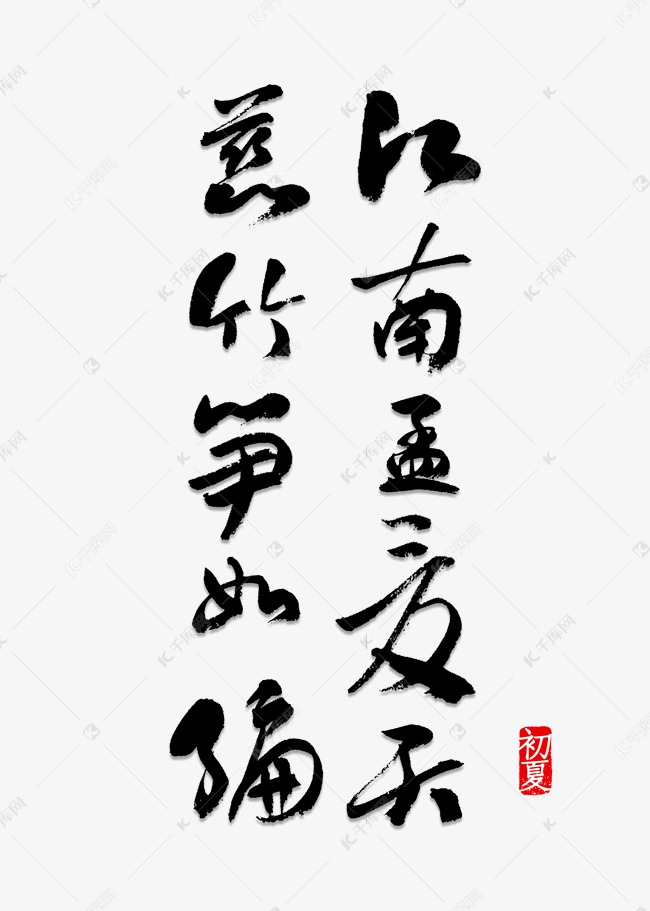 江南孟夏天
慈竹笋如编
初夏
千库网